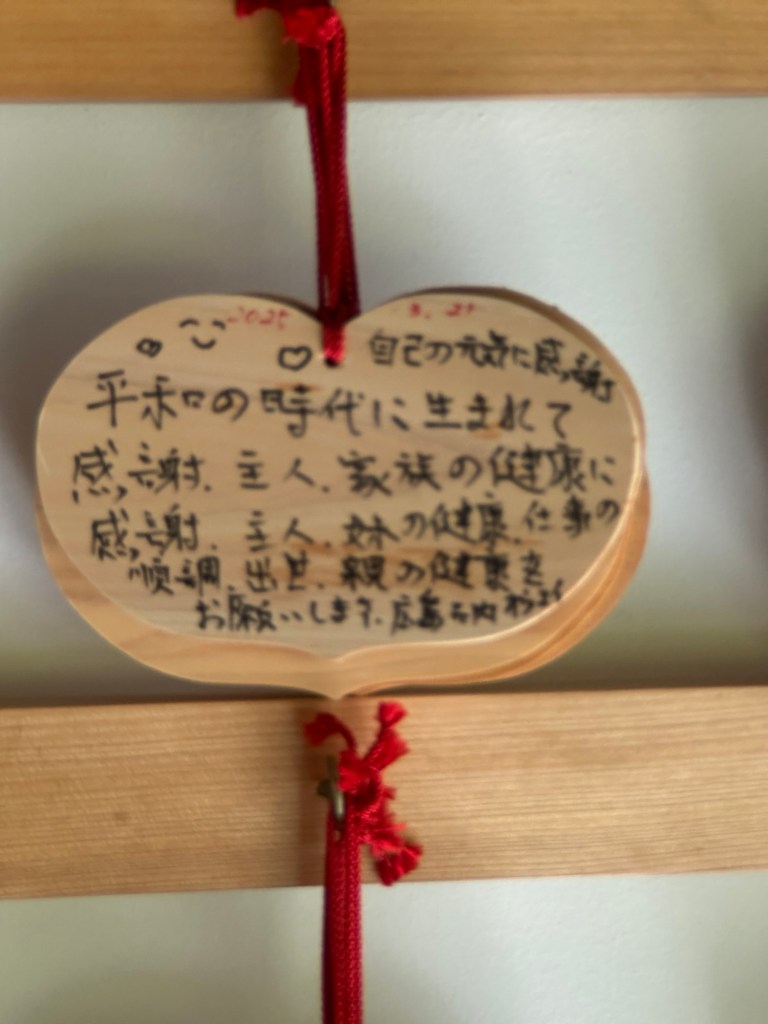 2025 3.27
自己の元気に感謝
平和の時代に生まれて
感謝.主人.家族の健康に
感謝.主人.妹の健康.仕事の
順調.出世.親の健康を
お願いします.広島市内